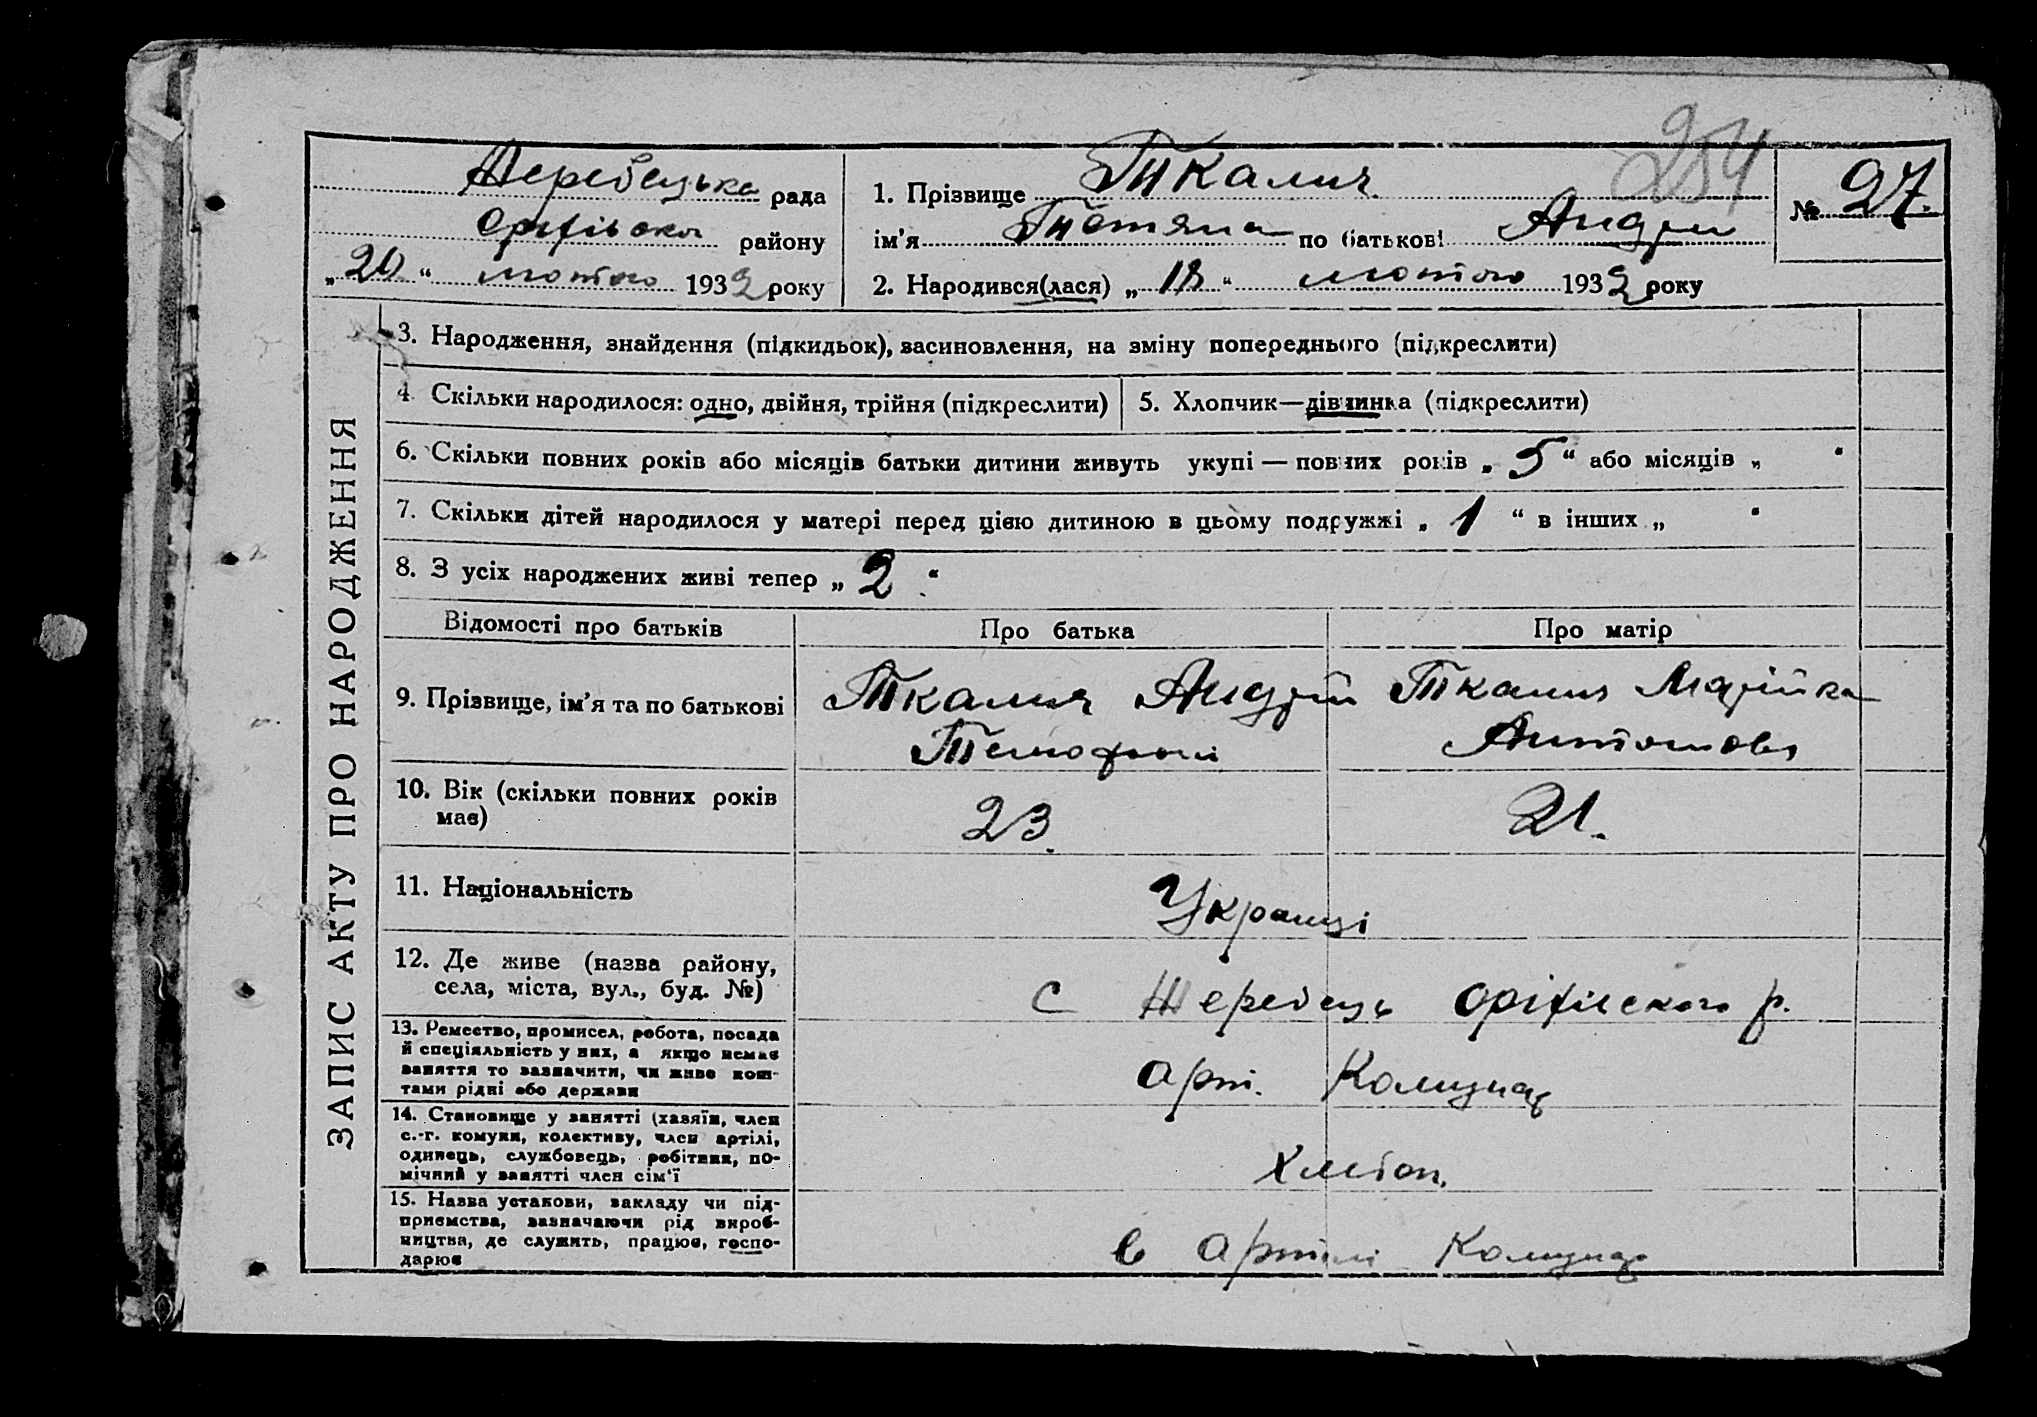 254
Жеребецька рада
Оріхівсько району
„20“ лютого 1932 року
1. Прізвище Ткалич
ім’я Тетяна по батькові Андрій
2. Народився(лася) „18“ лютого 1932 року
№ 27.
ЗАПИС АКТУ ПРО НАРОДЖЕННЯ
3. Народження, знайдення (підкидьок), засиновлення, на зміну попереднього (підкреслити)
4. Скільки народилося: одно, двійня, трійня (підкреслити)
5. Хлопчик—дівчинка (підкреслити)
6. Скільки повних років або місяців батьки дитини живуть укупі — повних років „5“ або місяців „ “
7. Скільки дітей народилося у матері перед цією дитиною в цьому подружжі „1“ в інших „ “
8. З усіх народжених живі тепер „2“
Відомості про батьків
Про батька
Про матір
9. Прізвище, ім’я та по батькові
Ткалич Андрій
Ткалич Марійка
Антоновн
10. Вік (скільки повних років
має)
23.
21.
11. Національність
Українці
12. Де живе (назва району,
села, міста, вул., буд. №)
с Жеребець Оріхівського р.
13. Ремество, промисел, робота, посада
й спеціяльність у них, а якщо немає
заняття то зазначити, чи живе кош-
тами рідні або держави
Арт. Комунар
14. Становище у занятті (хазяїн, член
с.-г. комуни, колективу, член артілі,
одинець, службовець, робітник, по-
мічний у занятті член сім‘ї
Хлібоп.
15. Назва установи, закладу чи під-
приємства, зазначаючи рід вироб-
ництва, де служить, працює, госпо-
дарює
в Артілі Комунар